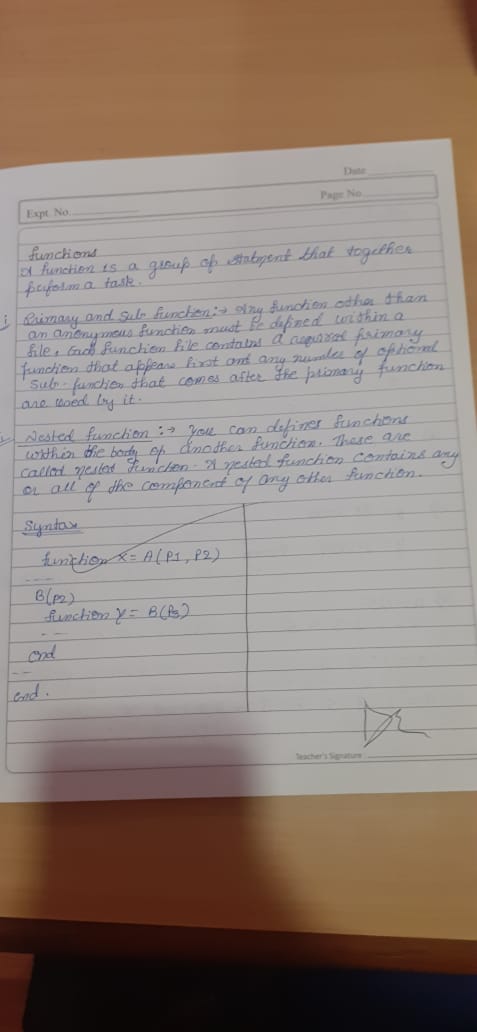 Date
Page No.
Expt. No.
functions
A function is a group of statment that together
perform a task.
Primary and Sub function :→ Any function other than
an anonymous function must be defined within a
file. Each function file contains a required primary
function that appears first and any number of optional
sub-function that comes after the primary function
are used by it.
Nested function :→ you can defines functions
within the body of another function. These are
called nested function. A nested function contains any
or all of the component of any other function.
Syntax
function x = A(P1, P2)
----
B(P2)
function y = B(P3)
--
end
--
end.
Teacher's Signature :